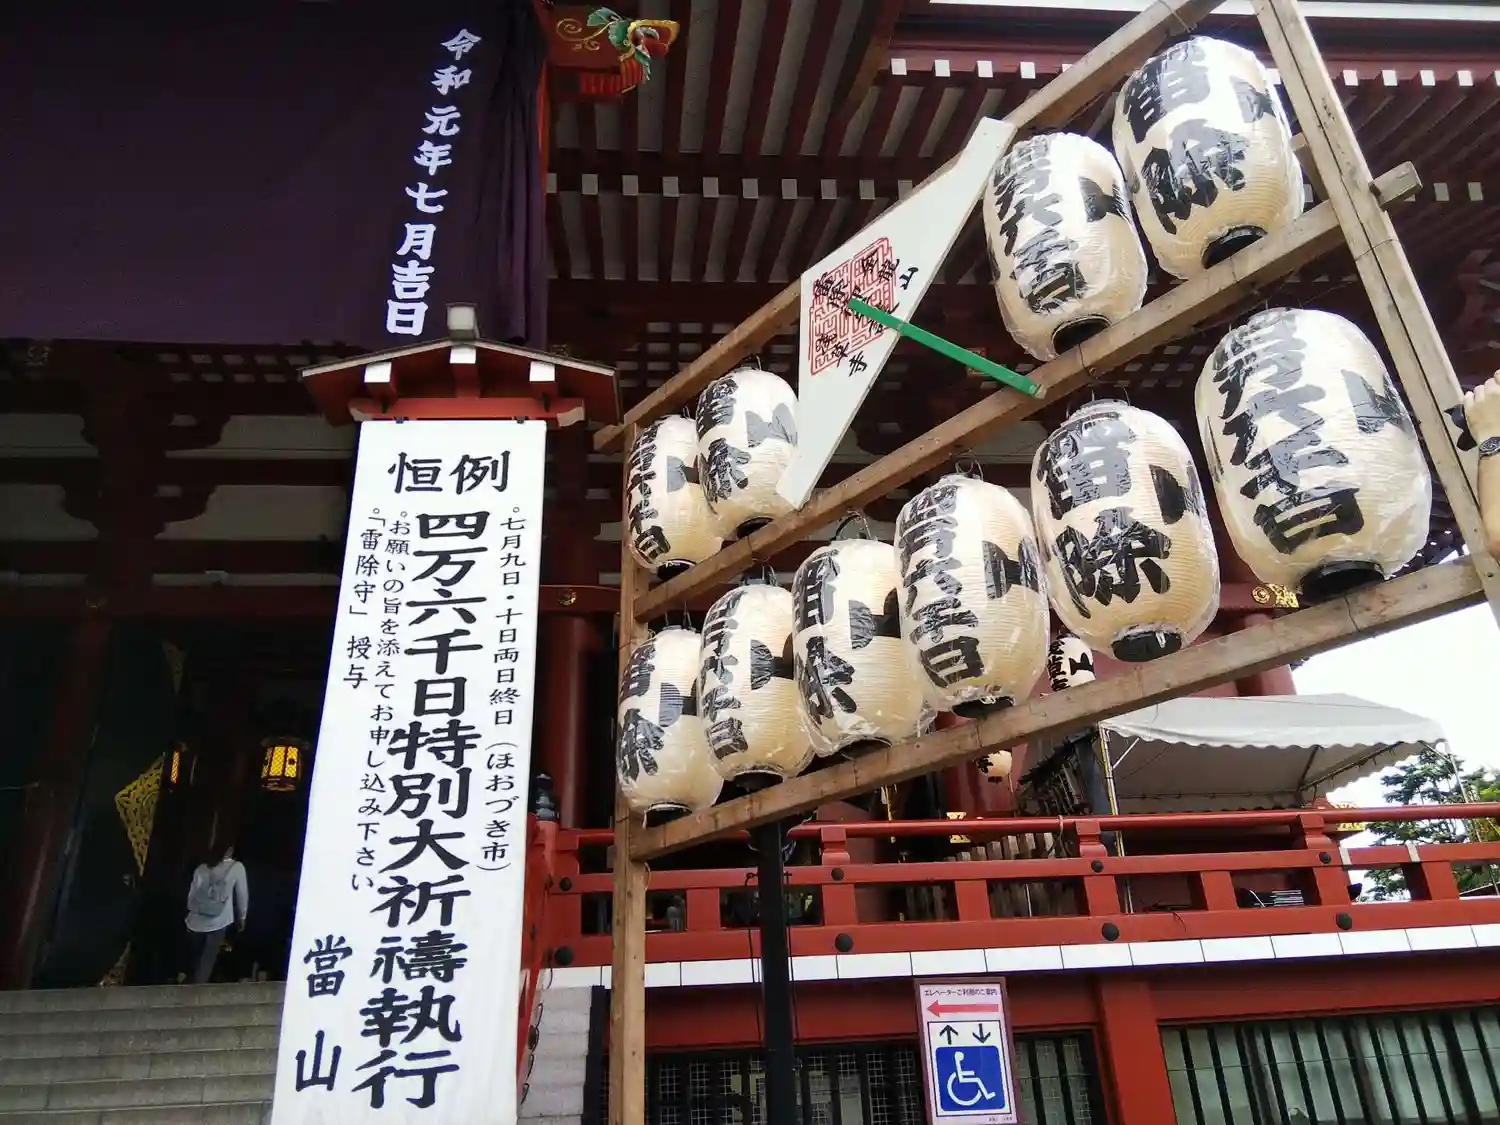 令和元年七月吉日
恒例
。七月九日・十日両日終日（ほおづき市）
四万六千日特別大祈禱執行
。お願いの旨を添えてお申し込み下さい
。「雷除守」授与
當山
雷除
四万六千日
雷除
四万六千日
四万六千日
雷除
四万六千日
雷除
四万六千日
雷除
エレベーターご利用のご案内